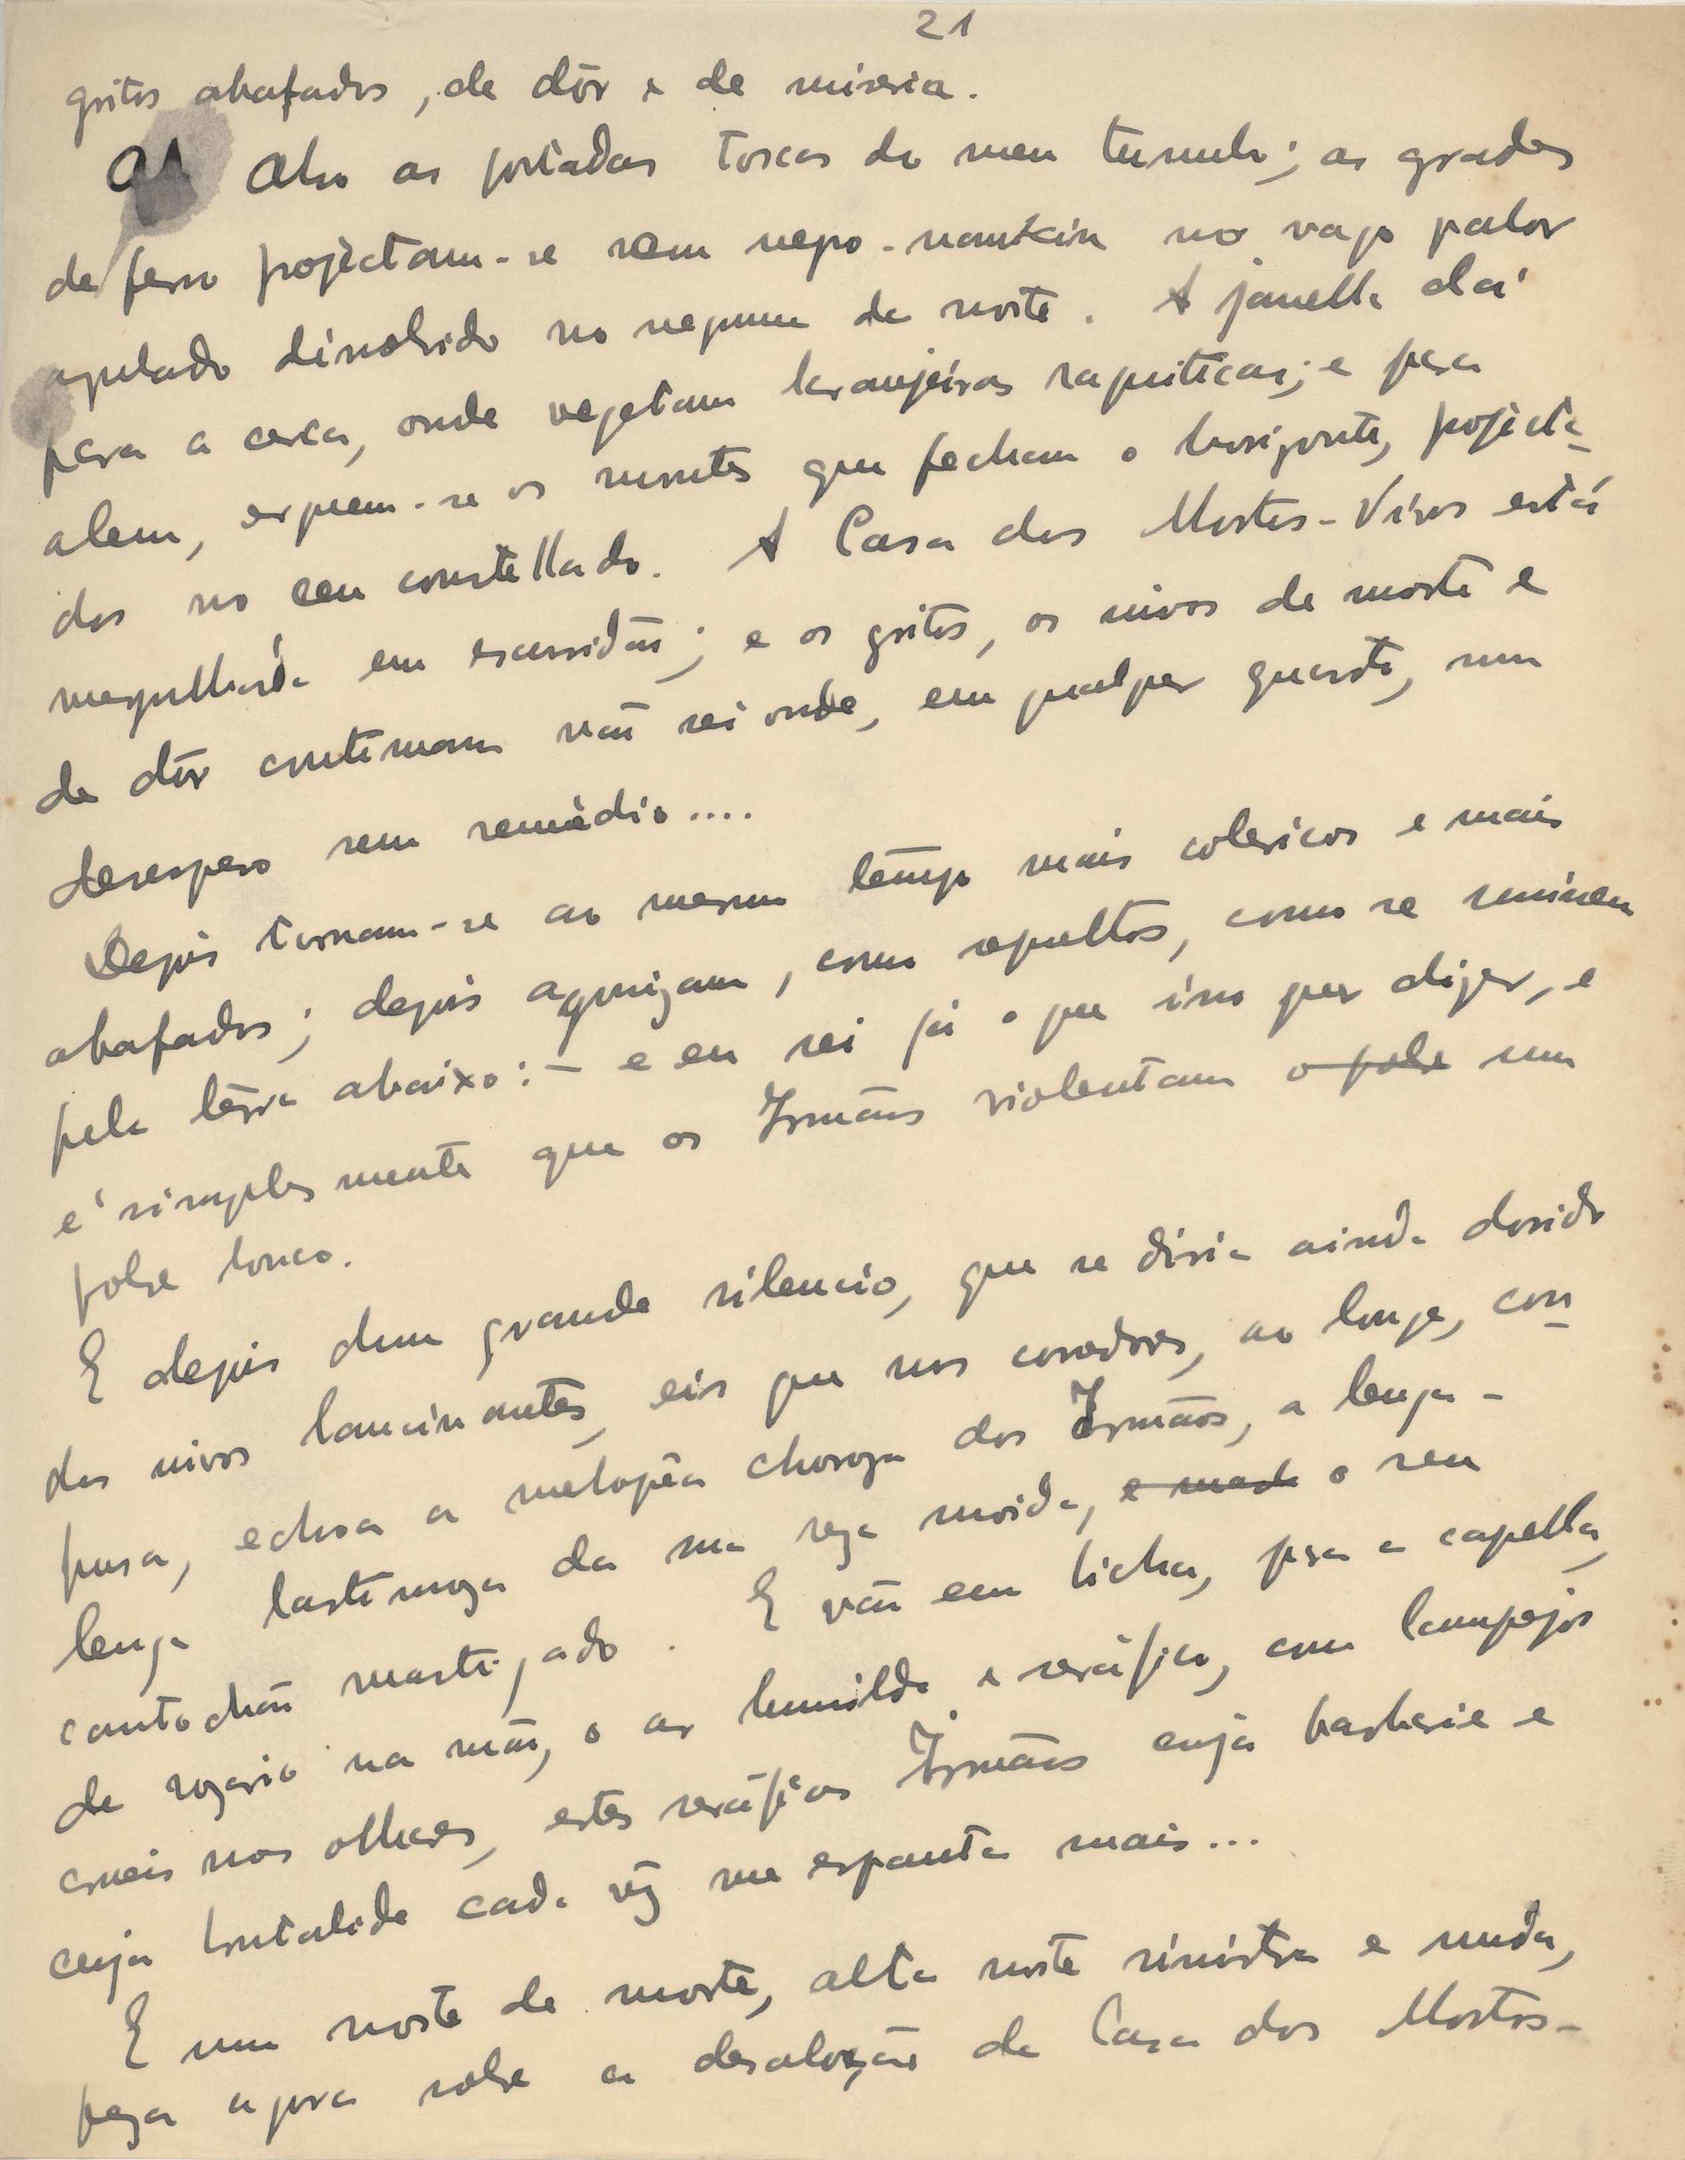 21
gritos abafados, de dôr e de miseria.
Abro as portadas toscas do meu tumulo; as grades
de ferro projéctam-se sem nego-nankin no vago palor
azulado dissolvido no negrume da noite. A janella dá
para a cerca, onde vegetam laranjeiras raquiticas; e pra
alem, erguem-se os montes que fecham o horizonte, projécta-
dos no ceu constellado. A Casa dos Mortos-Vivos está
mergulhada em escuridão; e os gritos, os uivos de morte e
de dôr continuam não sei onde, em qualquer quarto, num
desespero sem remédio....
Depois tornam-se ao mesmo tempo mais colericos e mais
abafados; depois agonizam, como sepultos, como se sumissem
pela terra abaixo: – e eu sei já o que isso quer dizer, e
é simplesmente que os Irmãos violentam o pobre um
pobre louco.
E depois dum grande silencio, que se diria ainda dorido
dos uivos lancinantes, eis que nos corredores, ao longe, con-
fusa, echoa a melopêa choroza dos Irmãos, a lenga-
lenga lastimoza da sua reza moida, o seu
cantochão mastigado. E vão em bicha, pra a capella,
de rozario na mão, o ar humilde e seráfico, com lampejos
crueis nos olhares, estes seráficos Irmãos cuja barbarie e
cuja brutalidade cada vêz me espanta mais...
E uma noite de morte, alta noite sinistra e muda,
peza agora sobre a desolação da Casa dos Mortos-